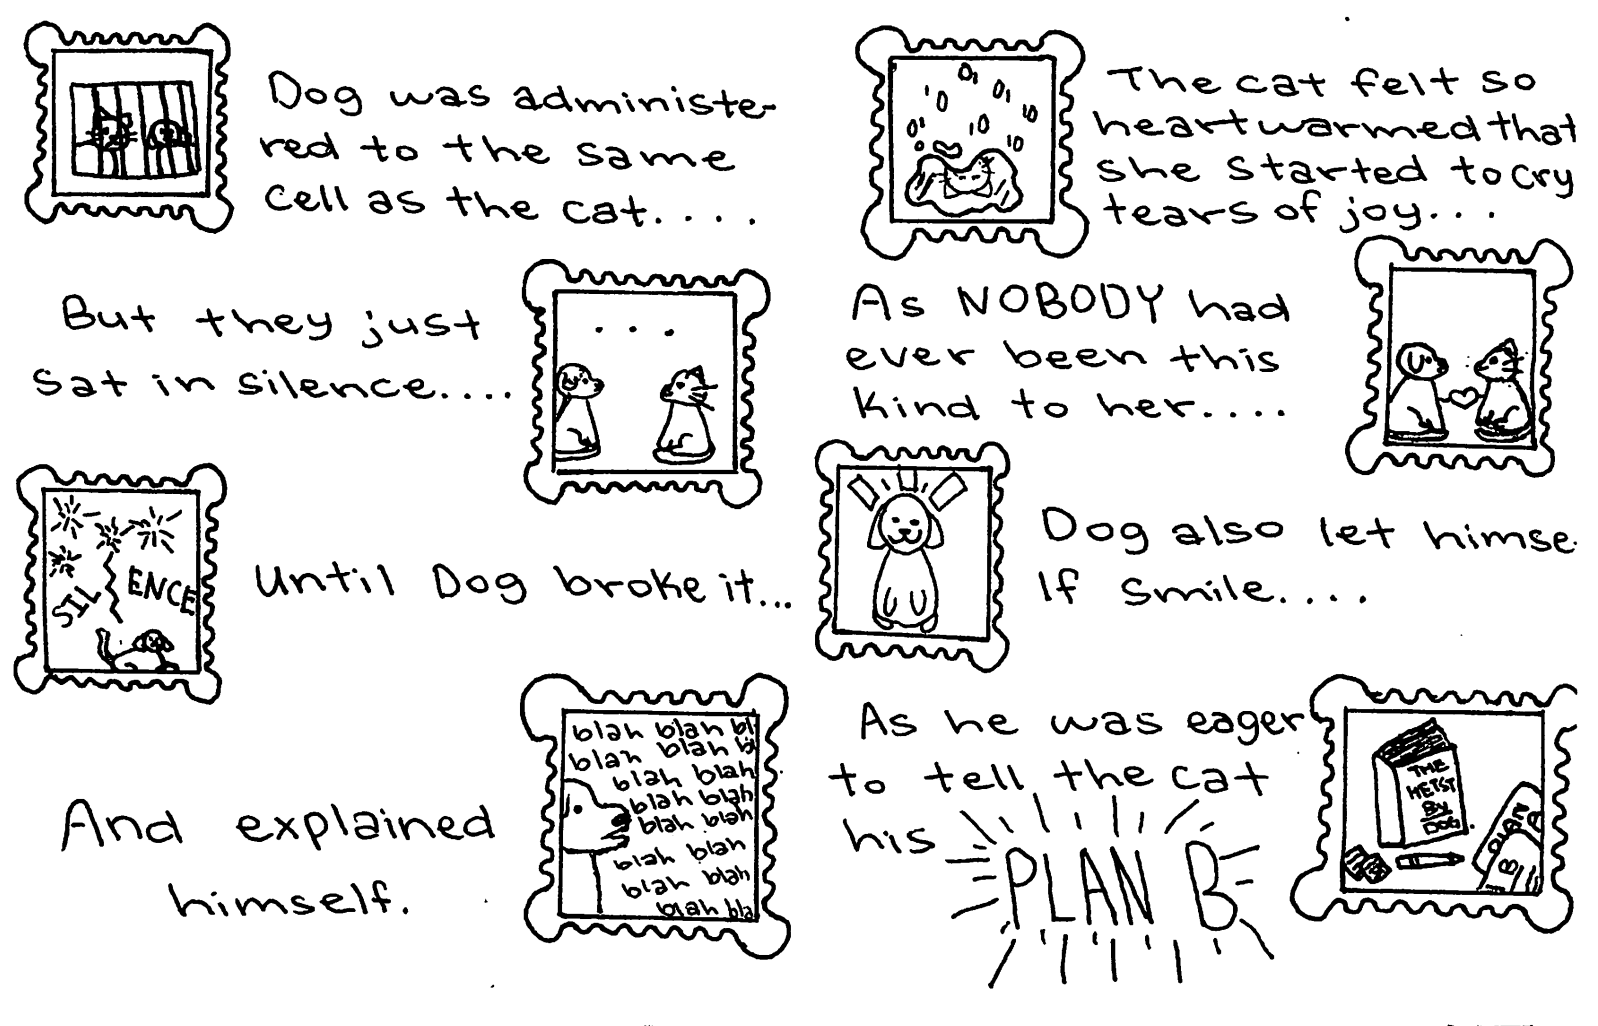 Dog was administe-
red to the same
cell as the cat....
But they just
sat in silence....
...
SIL ENCE
Until Dog broke it...
And explained
himself.
blah blah bl
blah blah bl
blah blah
blah blah
blah blah
blah blah
blah blah
blah bla
The cat felt so
heartwarmed that
she started to cry
tears of joy...
As NOBODY had
ever been this
kind to her....
Dog also let himse
lf smile....
As he was eager
to tell the cat
his PLAN B
THE
HEIST
BY
DOG.
PLAN
A
B